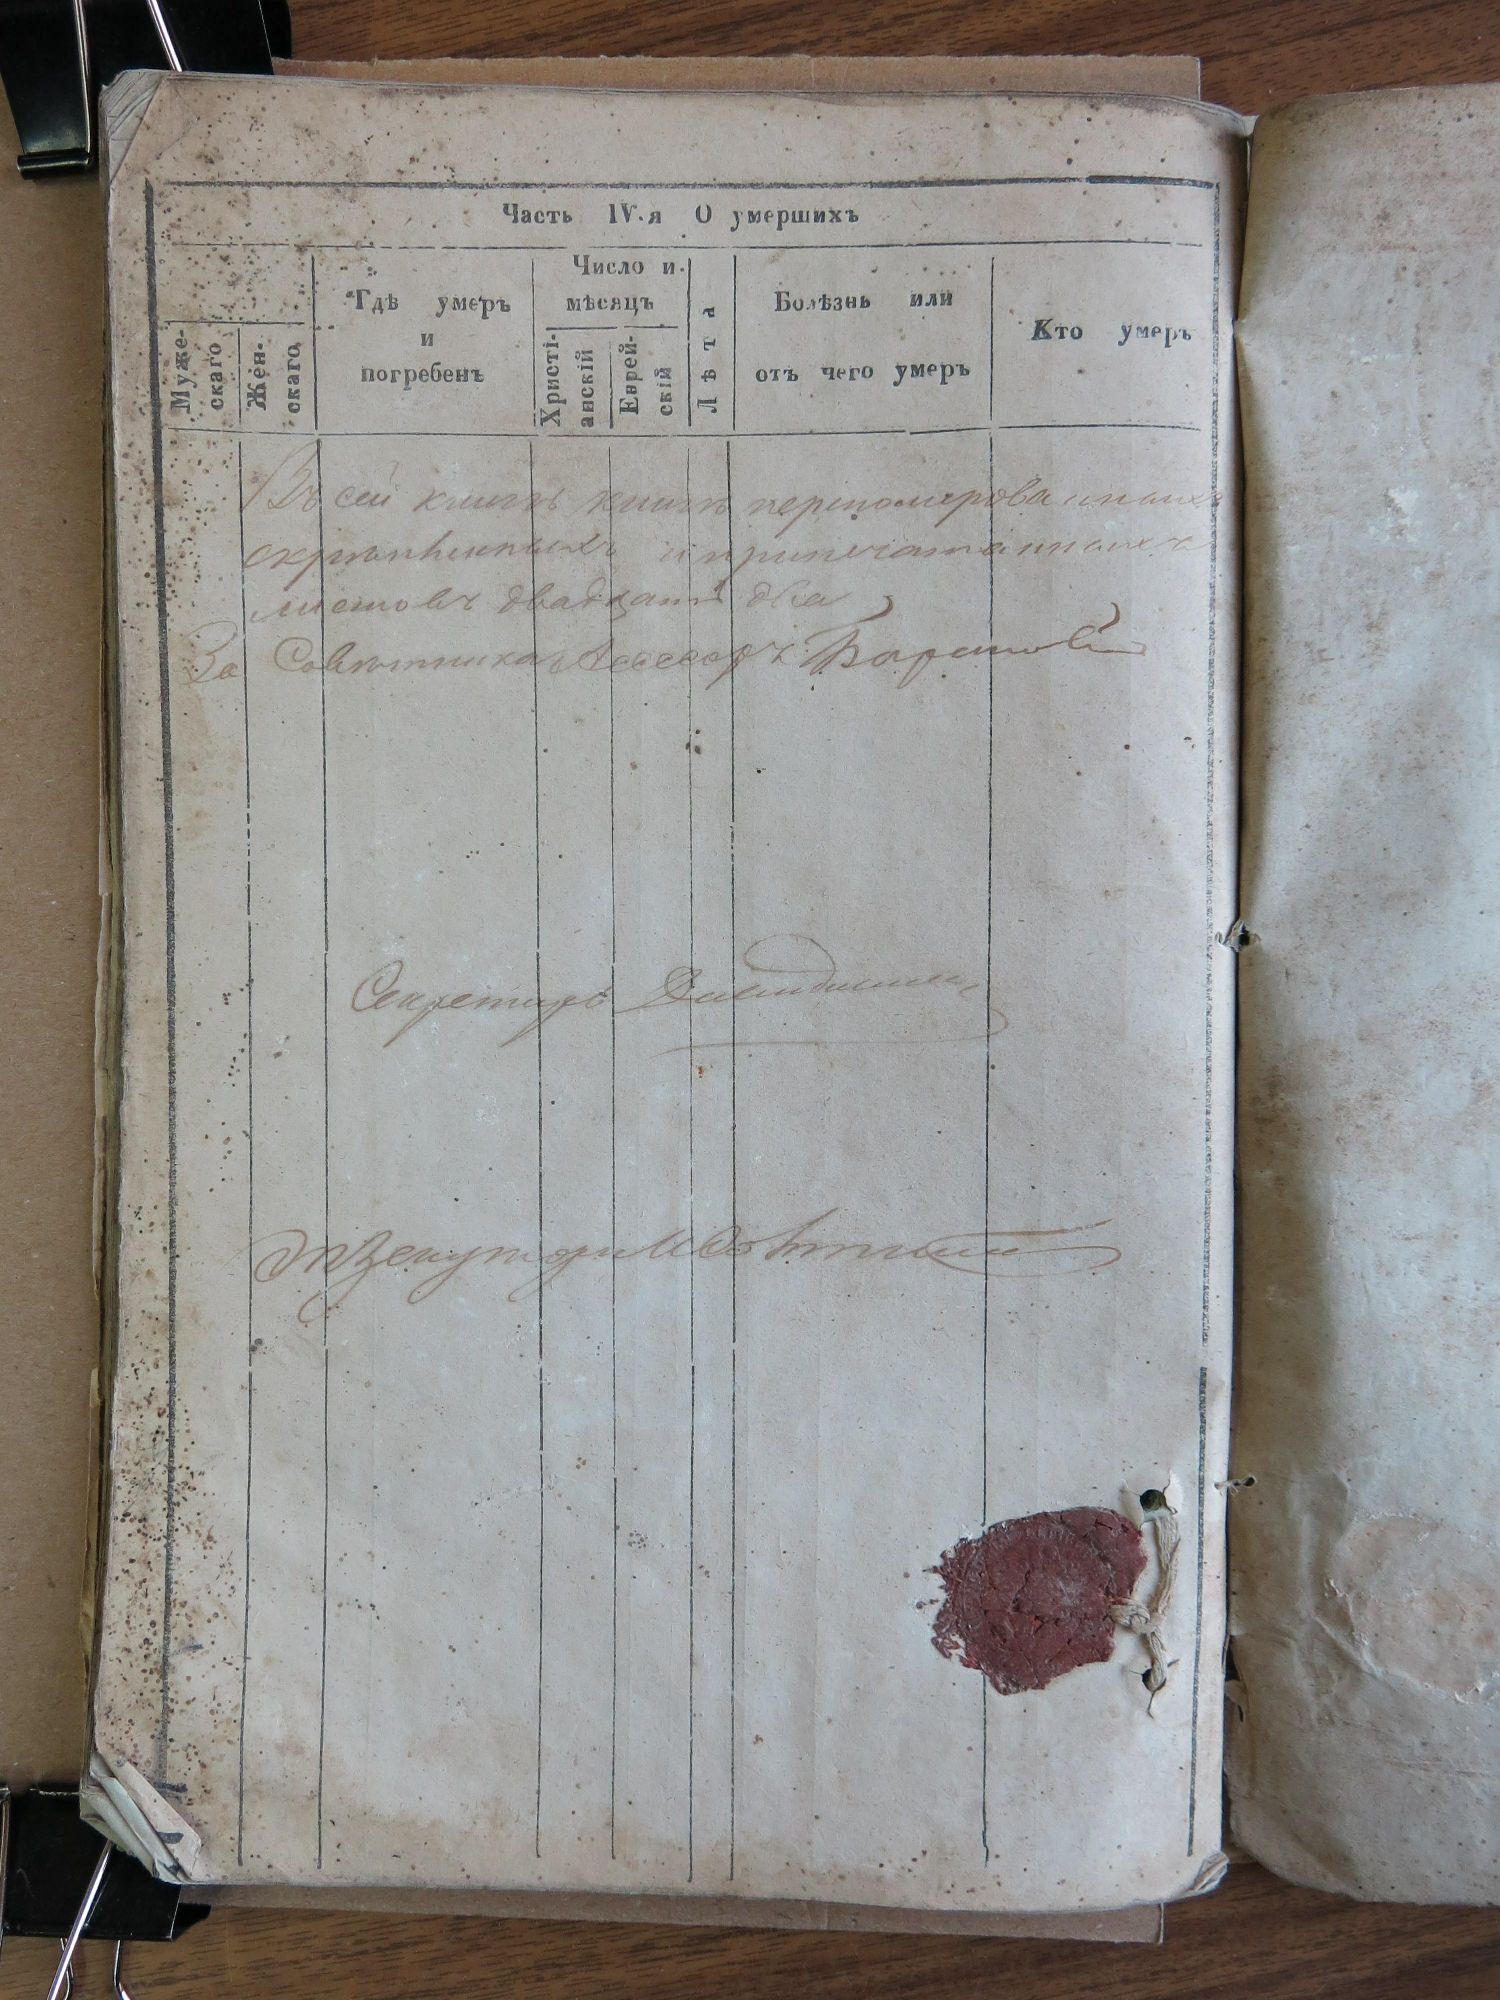 Часть IV-я О умершихъ
Муже-
скаго
Жен-
скаго
Гдѣ умеръ
и
погребенъ
Число и
мѣсяцъ
Христі-
анскій
Еврей-
скій
Лѣта
Болѣзнь или
отъ чего умеръ
Кто умеръ
Въ сей книгѣ книгѣ перенумерованныхъ
скрѣпленныхъ и припечатанныхъ
листовъ двадцать два
За Совѣтника Ассесоръ
Секретарь
Экзекуторъ